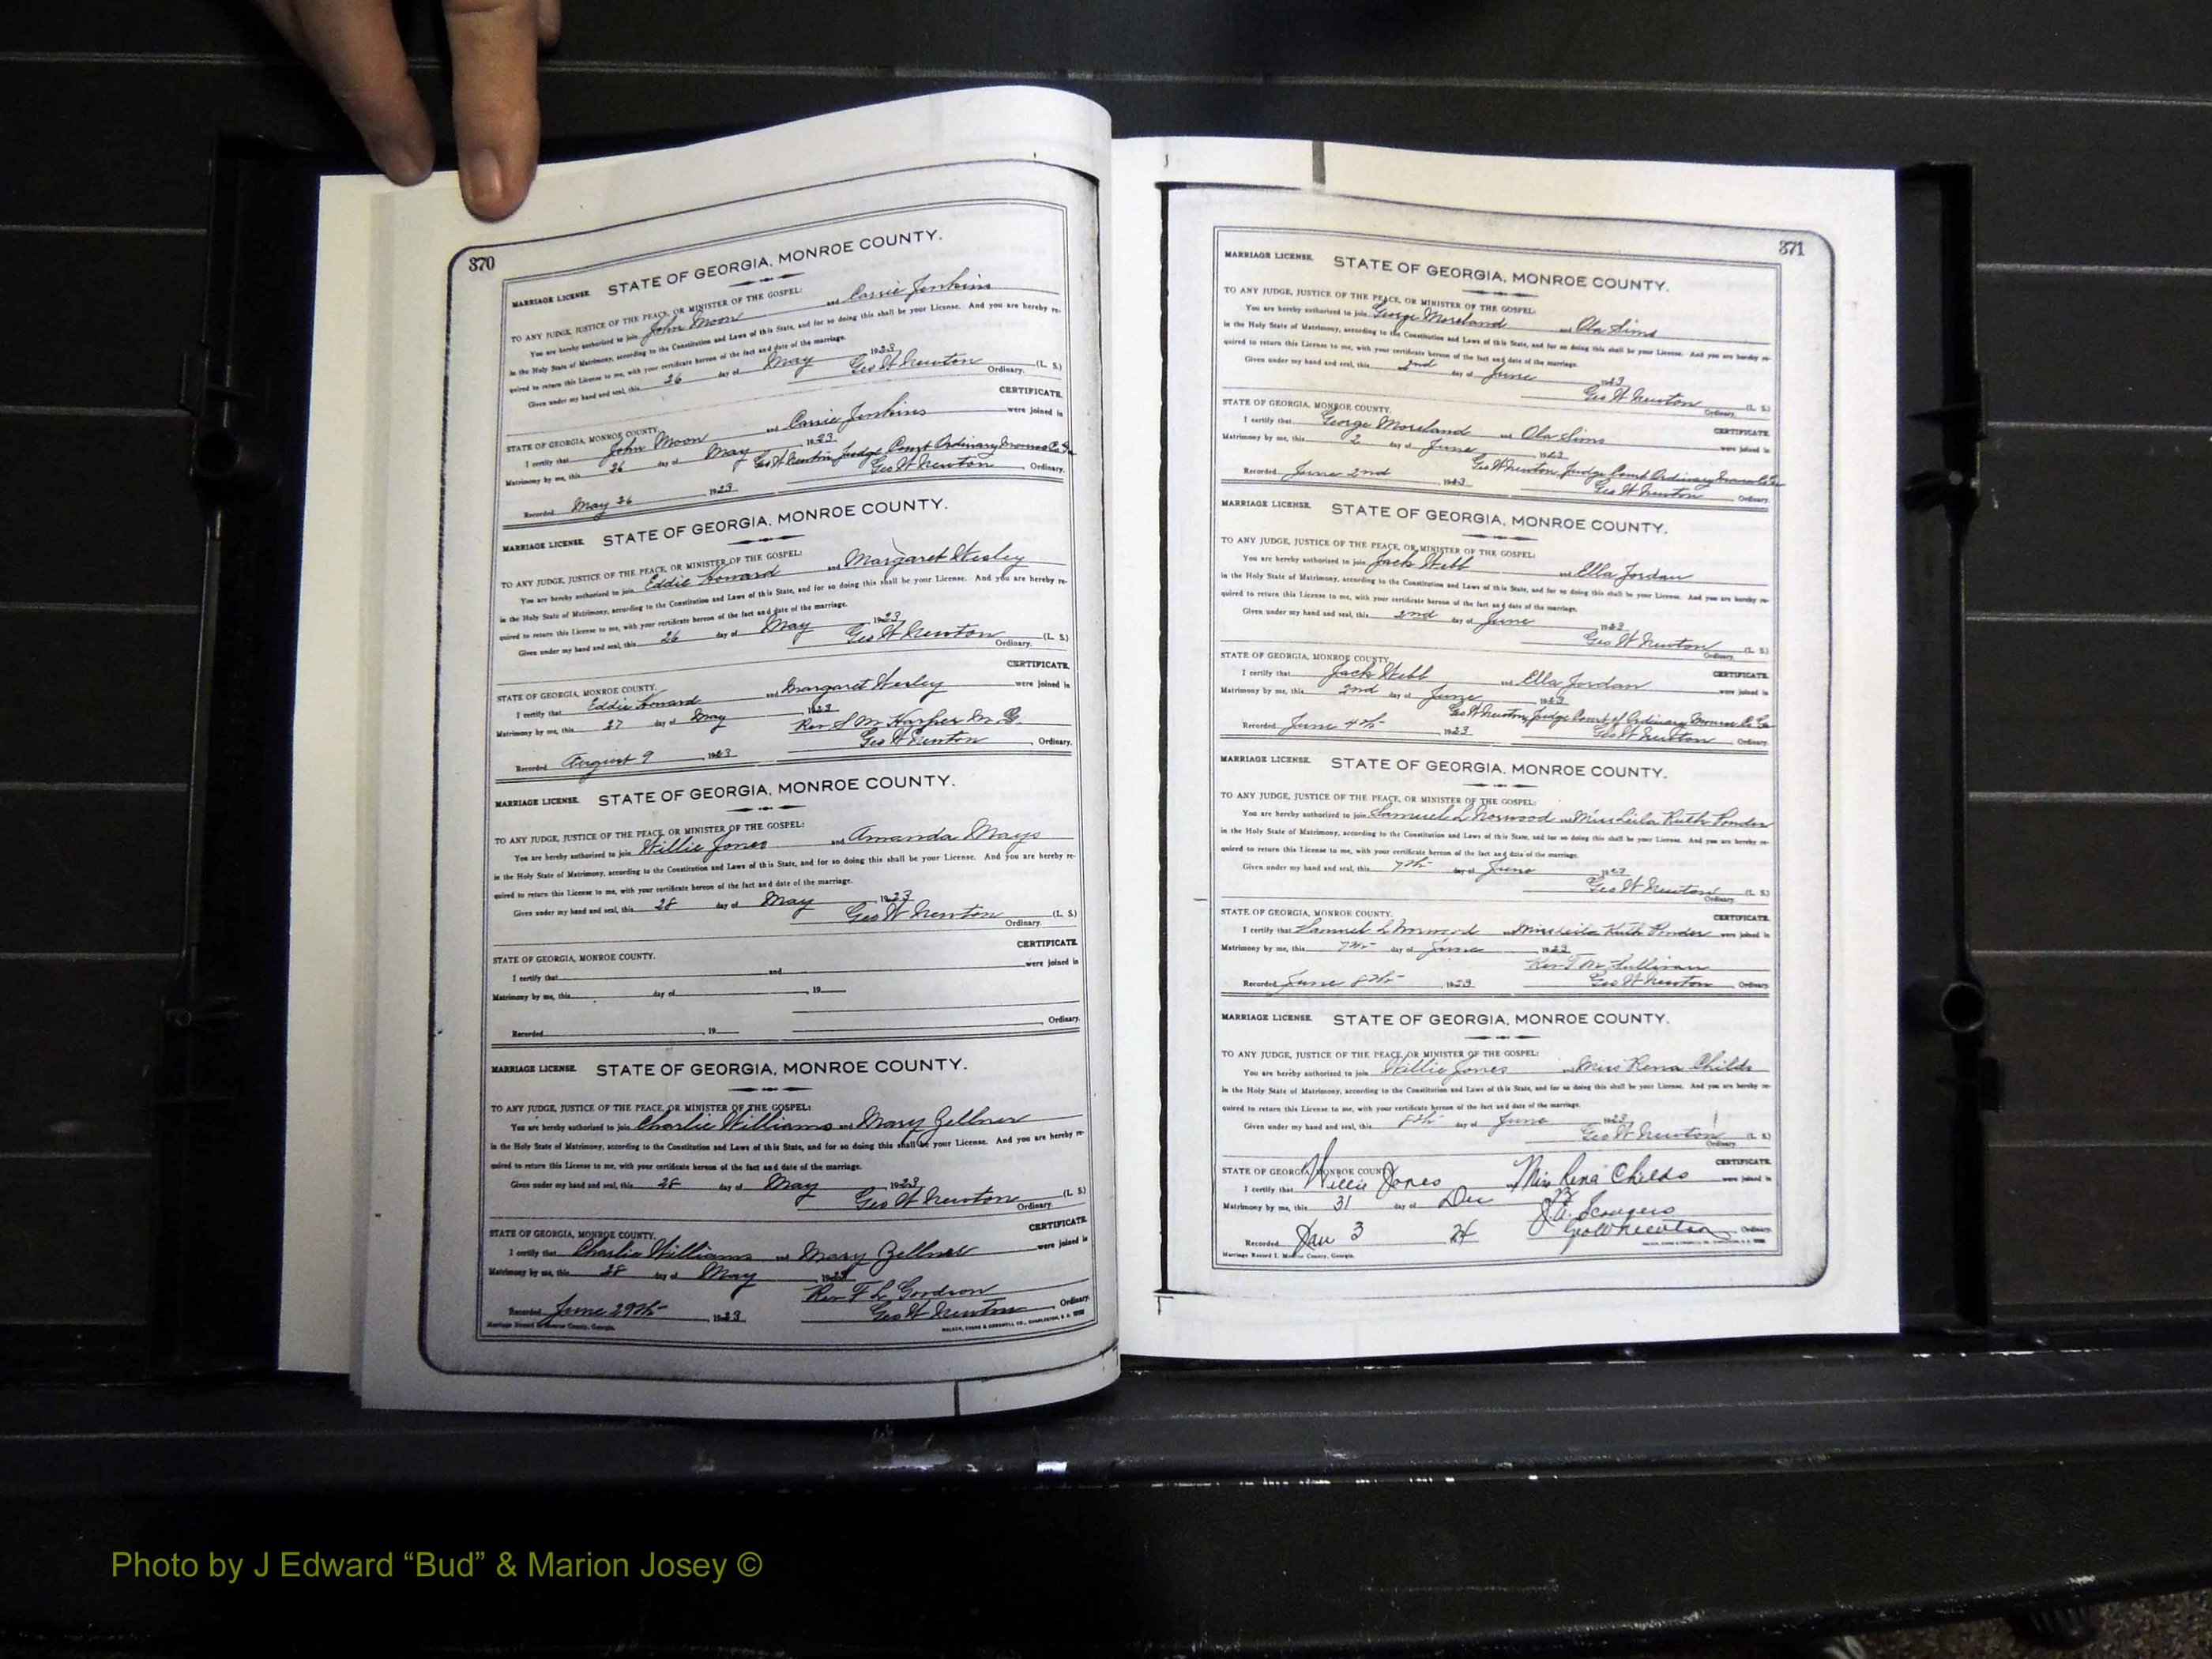 370
MARRIAGE LICENSE. STATE OF GEORGIA, MONROE COUNTY.
TO ANY JUDGE, JUSTICE OF THE PEACE, OR MINISTER OF THE GOSPEL:
You are hereby authorized to join John Moon and Carrie Jenkins
in the Holy State of Matrimony, according to the Constitution and Laws of this State, and for so doing this shall be your License. And you are hereby re-
quired to return this License to me, with your certificate hereon of the fact and date of the marriage.
Given under my hand and seal, this 26 day of May 1923
Geo W Newton (L. S.)
Ordinary.
CERTIFICATE.
STATE OF GEORGIA, MONROE COUNTY.
I certify that John Moon and Carrie Jenkins were joined in
Matrimony by me, this 26 day of May 1923
Geo W Newton Judge Court Ordinary Monroe Co Ga
Recorded May 26 1923 Geo W Newton, Ordinary.
MARRIAGE LICENSE. STATE OF GEORGIA, MONROE COUNTY.
TO ANY JUDGE, JUSTICE OF THE PEACE, OR MINISTER OF THE GOSPEL:
You are hereby authorized to join Eddie Howard and Margaret Wesley
in the Holy State of Matrimony, according to the Constitution and Laws of this State, and for so doing this shall be your License. And you are hereby re-
quired to return this License to me, with your certificate hereon of the fact and date of the marriage.
Given under my hand and seal, this 26 day of May 1923
Geo W Newton (L. S.)
Ordinary.
CERTIFICATE.
STATE OF GEORGIA, MONROE COUNTY.
I certify that Eddie Howard and Margaret Wesley were joined in
Matrimony by me, this 27 day of May 1923
Rev S M Harper M. G.
Recorded August 9 1923 Geo W Newton, Ordinary.
MARRIAGE LICENSE. STATE OF GEORGIA, MONROE COUNTY.
TO ANY JUDGE, JUSTICE OF THE PEACE, OR MINISTER OF THE GOSPEL:
You are hereby authorized to join Willie Jones and Amanda Mays
in the Holy State of Matrimony, according to the Constitution and Laws of this State, and for so doing this shall be your License. And you are hereby re-
quired to return this License to me, with your certificate hereon of the fact and date of the marriage.
Given under my hand and seal, this 28 day of May 1923
Geo W Newton (L. S.)
Ordinary.
CERTIFICATE.
STATE OF GEORGIA, MONROE COUNTY.
I certify that and were joined in
Matrimony by me, this day of , 19
Recorded , 19 , Ordinary.
MARRIAGE LICENSE. STATE OF GEORGIA, MONROE COUNTY.
TO ANY JUDGE, JUSTICE OF THE PEACE, OR MINISTER OF THE GOSPEL:
You are hereby authorized to join Charlie Williams and Mary Zellner
in the Holy State of Matrimony, according to the Constitution and Laws of this State, and for so doing this shall be your License. And you are hereby re-
quired to return this License to me, with your certificate hereon of the fact and date of the marriage.
Given under my hand and seal, this 28 day of May 1923
Geo W Newton (L. S.)
Ordinary.
CERTIFICATE.
STATE OF GEORGIA, MONROE COUNTY.
I certify that Charlie Williams and Mary Zellner were joined in
Matrimony by me, this 28 day of May 1923
Rev F L Gordron
Recorded June 29th 1923 Geo W Newton, Ordinary.
Marriage Record Monroe County, Georgia. WALKER, EVANS & COGSWELL CO., CHARLESTON, S. C.
371
MARRIAGE LICENSE. STATE OF GEORGIA, MONROE COUNTY.
TO ANY JUDGE, JUSTICE OF THE PEACE, OR MINISTER OF THE GOSPEL:
You are hereby authorized to join George Moreland and Ola Sims
in the Holy State of Matrimony, according to the Constitution and Laws of this State, and for so doing this shall be your License. And you are hereby re-
quired to return this License to me, with your certificate hereon of the fact and date of the marriage.
Given under my hand and seal, this 2nd day of June 1923
Geo W Newton (L. S.)
Ordinary.
STATE OF GEORGIA, MONROE COUNTY. CERTIFICATE.
I certify that George Moreland and Ola Sims were joined in
Matrimony by me, this 2 day of June 1923
Geo W Newton, Judge Court Ordinary Monroe Co Ga
Recorded June 2nd 1923 Geo W Newton Ordinary.
MARRIAGE LICENSE. STATE OF GEORGIA, MONROE COUNTY.
TO ANY JUDGE, JUSTICE OF THE PEACE, OR MINISTER OF THE GOSPEL:
You are hereby authorized to join Jack Webb and Ella Jordan
in the Holy State of Matrimony, according to the Constitution and Laws of this State, and for so doing this shall be your License. And you are hereby re-
quired to return this License to me, with your certificate hereon of the fact and date of the marriage.
Given under my hand and seal, this 2nd day of June 1923
Geo W Newton (L. S.)
Ordinary.
STATE OF GEORGIA, MONROE COUNTY. CERTIFICATE.
I certify that Jack Webb and Ella Jordan were joined in
Matrimony by me, this 2nd day of June 1923
Geo W Newton, Judge Court of Ordinary Monroe Co Ga
Recorded June 4th 1923 Geo W Newton Ordinary.
MARRIAGE LICENSE. STATE OF GEORGIA, MONROE COUNTY.
TO ANY JUDGE, JUSTICE OF THE PEACE, OR MINISTER OF THE GOSPEL:
You are hereby authorized to join Samuel L Norwood and Miss Leila Ruth Ponder
in the Holy State of Matrimony, according to the Constitution and Laws of this State, and for so doing this shall be your License. And you are hereby re-
quired to return this License to me, with your certificate hereon of the fact and date of the marriage.
Given under my hand and seal, this 7th day of June 1923
Geo W Newton (L. S.)
Ordinary.
STATE OF GEORGIA, MONROE COUNTY. CERTIFICATE.
I certify that Samuel L Norwood and Miss Leila Ruth Ponder were joined in
Matrimony by me, this 7th day of June 1923
Rev T M Sullivan
Recorded June 8th 1923 Geo W Newton Ordinary.
MARRIAGE LICENSE. STATE OF GEORGIA, MONROE COUNTY.
TO ANY JUDGE, JUSTICE OF THE PEACE, OR MINISTER OF THE GOSPEL:
You are hereby authorized to join Willie Jones and Miss Rena Childs
in the Holy State of Matrimony, according to the Constitution and Laws of this State, and for so doing this shall be your License. And you are hereby re-
quired to return this License to me, with your certificate hereon of the fact and date of the marriage.
Given under my hand and seal, this 8th day of June 1923
Geo W Newton (L. S.)
Ordinary.
STATE OF GEORGIA, MONROE COUNTY. CERTIFICATE.
I certify that Willie Jones and Miss Rena Childs were joined in
Matrimony by me, this 31 day of Dec 23
J. A.
Recorded Jan 3 24 Geo W Newton Ordinary.
Marriage Record I. Monroe County, Georgia.
Photo by J Edward “Bud” & Marion Josey ©